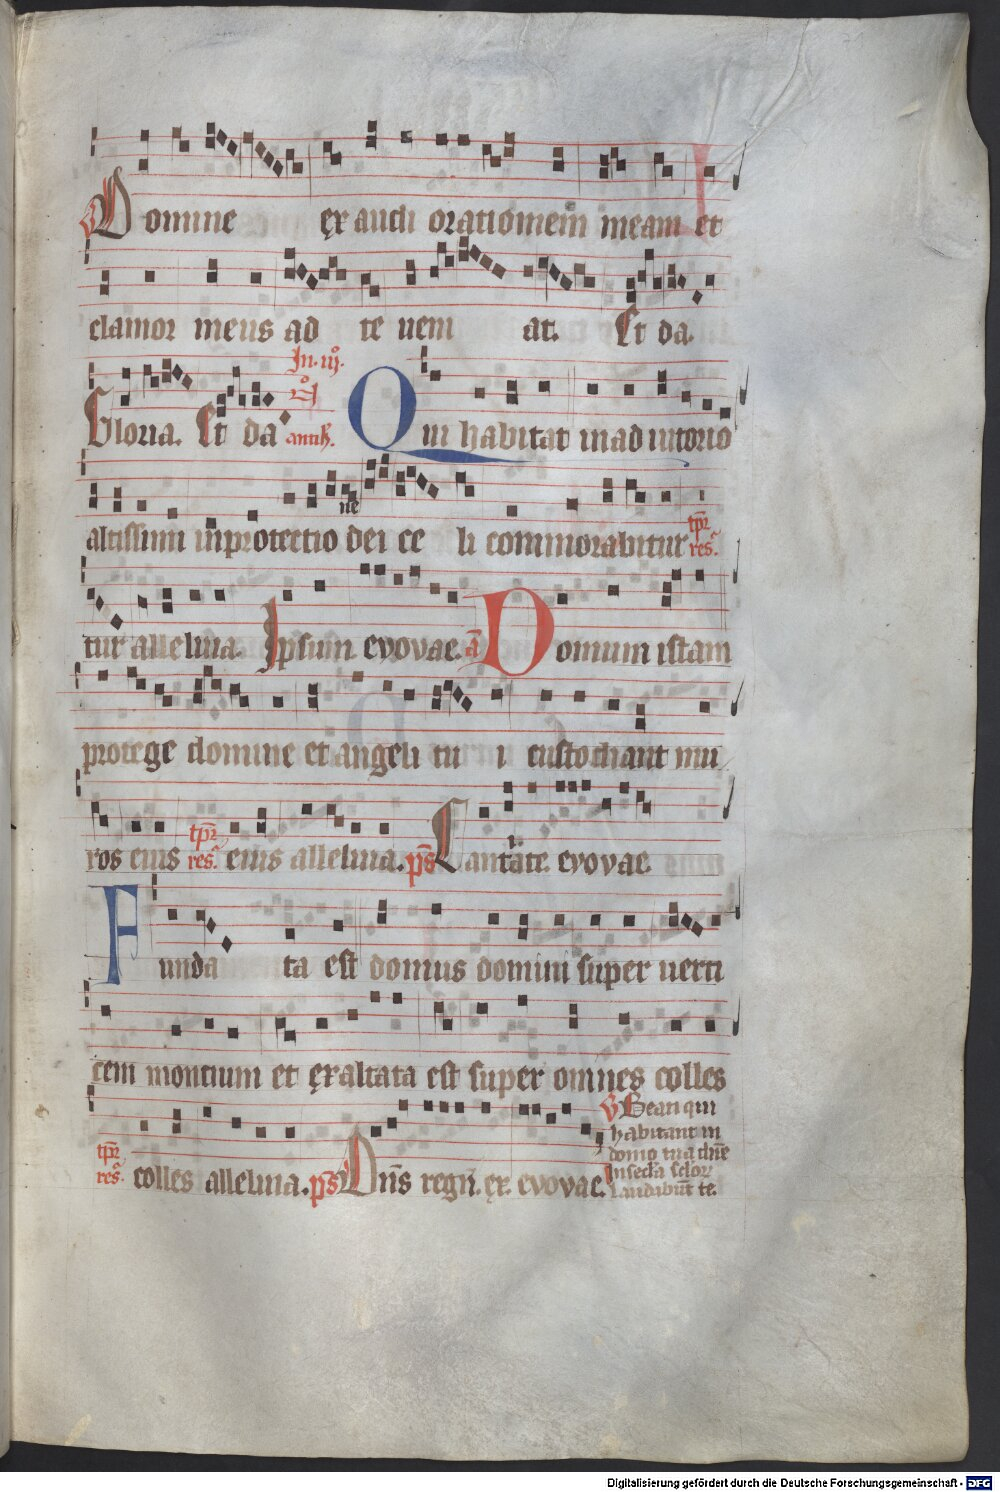 Domine exaudi orationem meam et
clamor meus ad te veni at. Et da.
In. iij. no
Gloria. Et da antiph. Qui habitat in ad iutorio
ne
altissimi in protectio dei ce li commorabitur tpr res.
tur alleluia. Ipsum evovae. a Domum istam
protege domine et angeli tu i custodiant mu
ros eius tpr res. eius alleluia. ps Cantate. evovae.
Funda ta est domus domini super verti
cem montium et exaltata est super omnes colles
tpr res. colles alleluia. ps Dns regn. ex. evovae.
V Beati qui
habitant in
domo tua dne
In secla seclor
laudabunt te.
Digitalisierung gefördert durch die Deutsche Forschungsgemeinschaft - DFG